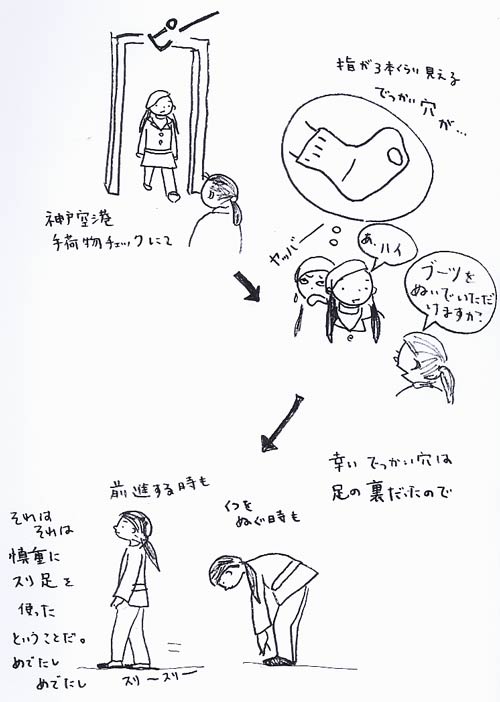 神戸空港
手荷物チェックにて
指が3本くらい見える
でっかい穴が…
ヤッバー
あ、ハイ
ブーツを
ぬいでいただ
けますか?
幸い でっかい穴は
足の裏だったので
前進する時も
ぬぐ時も
それは
それは
慎重に
スリ足を
使った
ということだ。
めでたし
めでたし
スリ〜スリー